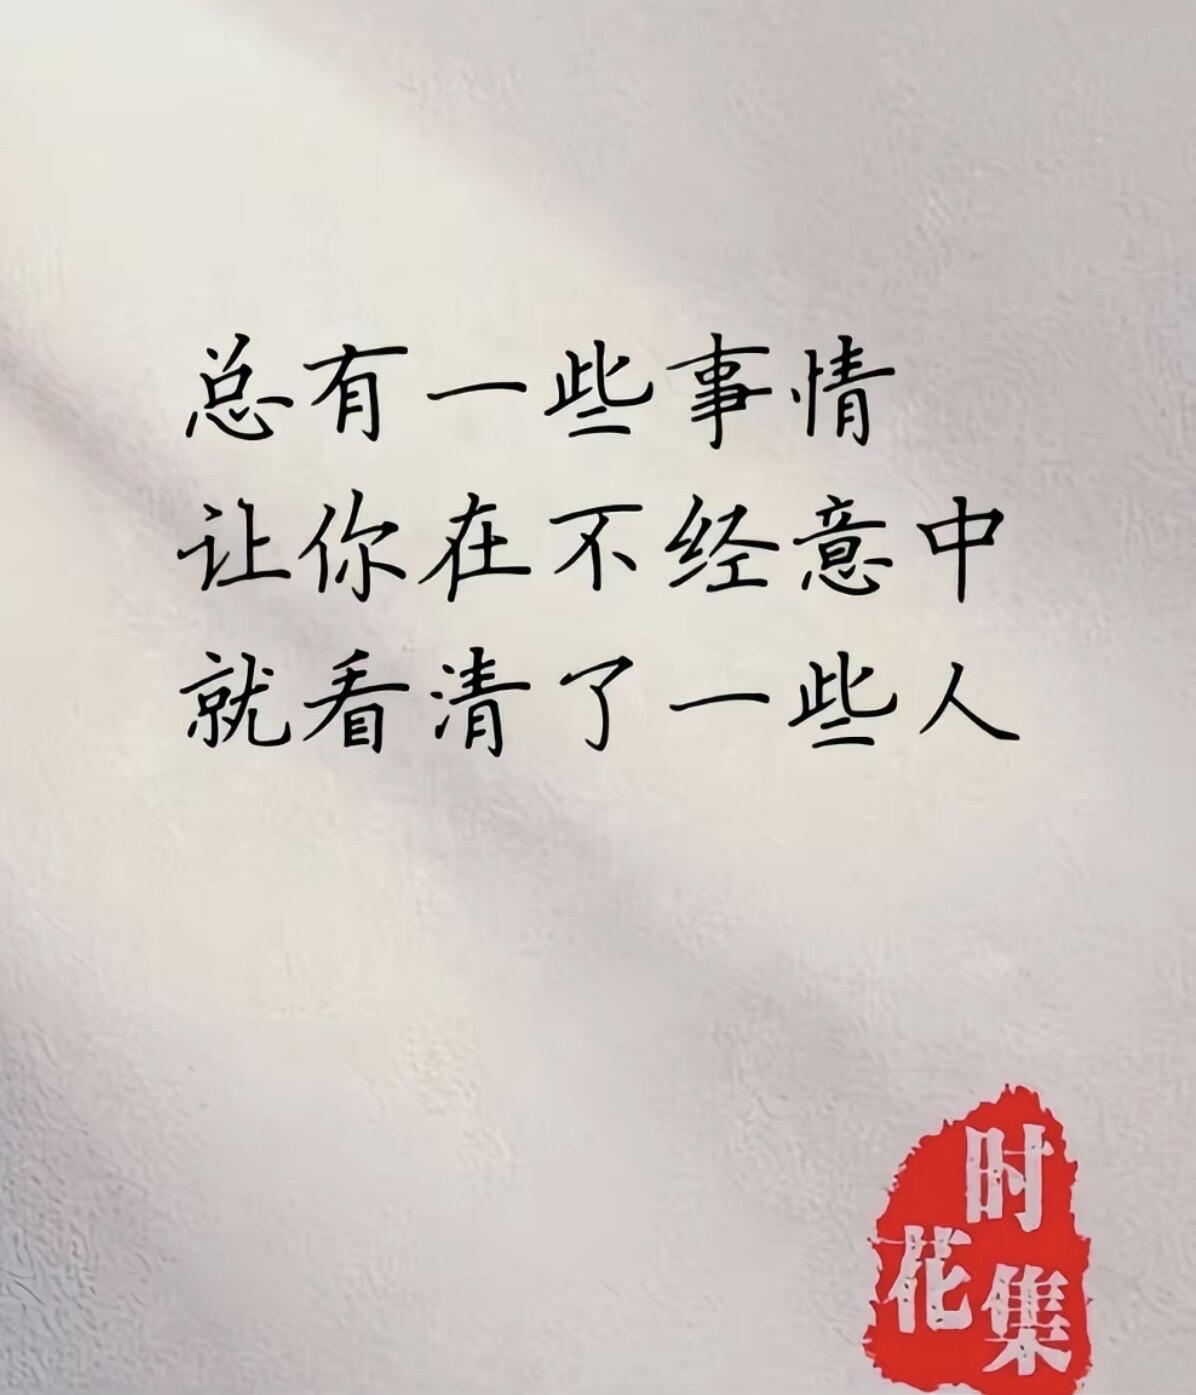 总有一些事情
让你在不经意中
就看清了一些人
时
花集